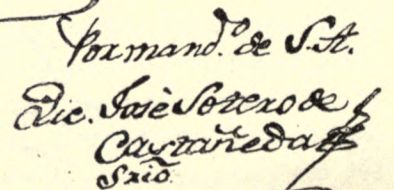 Por mand.º de S. A.
Lic. José Sotero de
Castañeda
Srio.